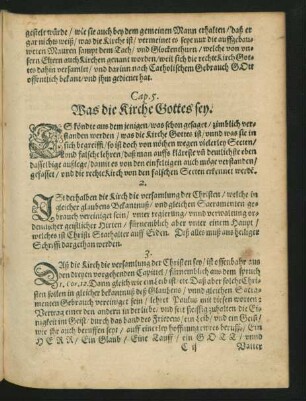 gestelt würde / wie sich auch bey dem gemeinen Mann erhalten / daß er
gar nichts weiß / was die Kirche ist / vermeinet es seye nur die auffgebaw-
eten Mauren sampt dem Tach / vnd Glockenthurn / welche von vn-
sern Eltern auch Kirchen genant worden / weil sich die rechte Kirch Got-
tes dahin versamlet / vnd darinn nach Catholischem Gebrauch GOtt
öffentlich bekant / vnd jhm gedienet hat.
Cap. 5.
Was die Kirche Gottes sey.
ES köndte auß dem jenigen / was schon gesaget / zimblich ver-
standen werden / was die Kirche Gottes ist / vnnd was sie in
sich begreifft / so ist doch von nöhten wegen vielerley Secten /
vnd falscher lehren / daß man auffs kläreste vñ deutlichste den-
selbige außlege / damit es von den einfeltigen auch möge verstanden /
gefasset / vnd die rechte Kirch von den falschen Secten erkennet werde.
2.
IST derhalben die Kirch die versamlung der Christen / welche in
gleicher glaubens Bekantnuß / vnd gleichen Sacramenten ge-
brauch vereiniget sein / vnter regierung / vnnd verwaltung or-
dentlicher geistlicher Hirten / fürnemblich aber vnter einem Haupt /
welches ist Christi Stathalter auff Erden. Diß alles muß auß heiliger
Schrifft dargethan werden.
3.
Daß die Kirch die versamlung der Christen sey / ist offenbahr auß
den dreyen vorgehenden Capitel / fürnemblich auß dem spruch
1. cor. 12. Dann gleich wie ein Leib ist etc. Daß aber solche Chri-
sten sollen in gleicher bekantnuß deß Glaubens / vnnd gleichen Sacra-
menten Gebrauch vereiniget sein / lehret Paulus mit diesen worten:
Vertrag einer den andern in der liebe / vnd seit fleissig zuhalten die Ei-
nigkeit im Geist / durch das band des Friedens / ein Leib / vnd ein Geist /
wie jhr auch beruffen seyt / auff einerley hoffnung ewres beruffs / Ein
HERR / Ein Glaub / Eine Tauff / ein GOTT / vnnd
C ij Vatter